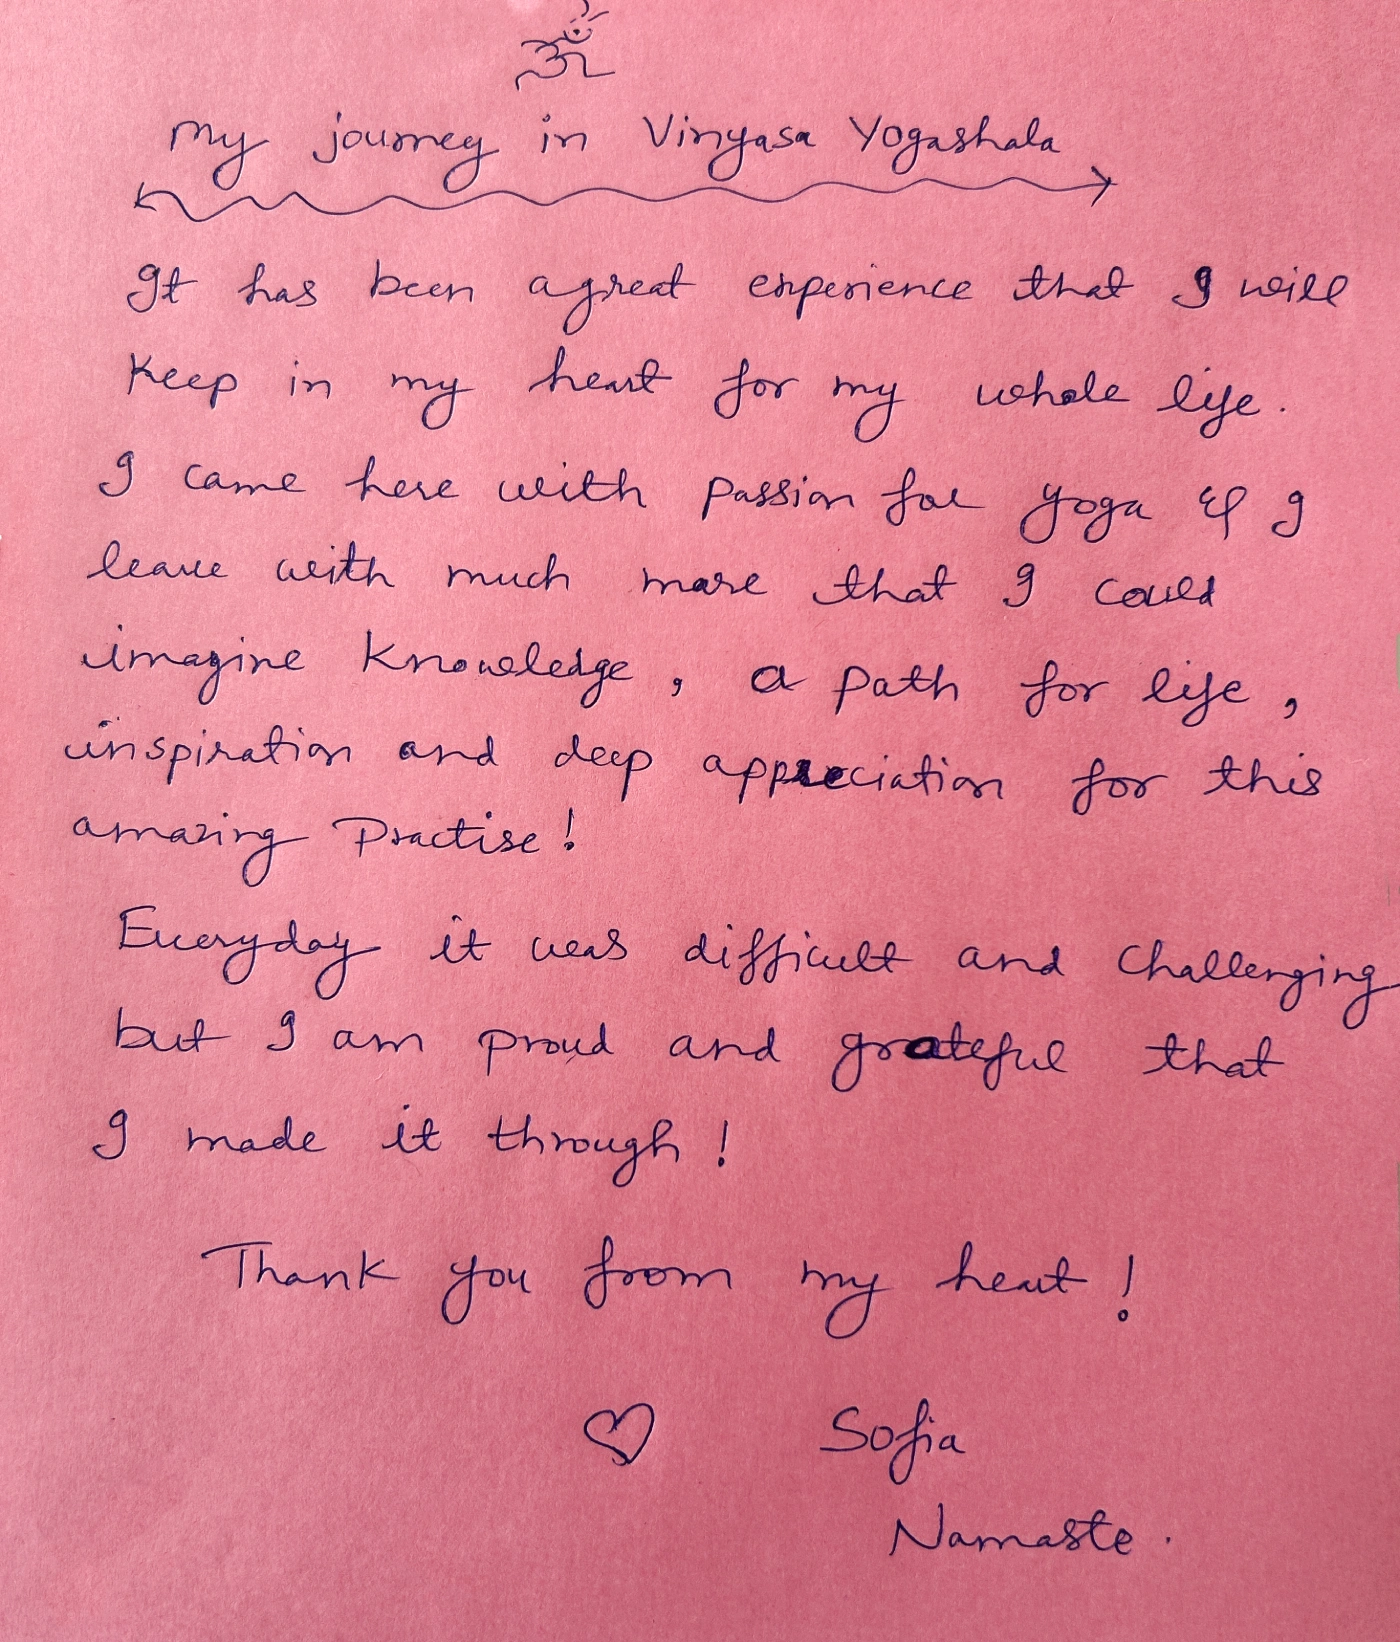 ॐ
My journey in Vinyasa Yogashala
It has been a great experience that I will
Keep in my heart for my whole life.
I came here with passion for yoga & I
leave with much more that I could
imagine knowledge, a path for life,
inspiration and deep appreciation for this
amazing Practise!
Everyday it was difficult and challenging
but I am proud and grateful that
I made it through!
Thank you from my heart!
♡ Sofia
Namaste.